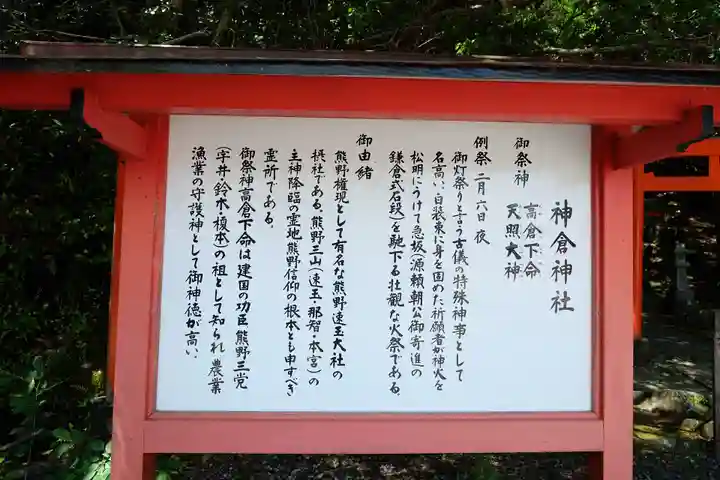 神倉神社
御祭神 高倉下命
天照大神
例祭 二月六日夜
御灯祭りと言う古儀の特殊神事として
名高い、白装束に身を固めた祈願者が神火を
松明にうけて急坂(源頼朝公御寄進の
鎌倉式石段)を馳下る壮観な火祭である。
御由緒
熊野権現として有名な熊野速玉大社の
摂社である。熊野三山(速玉・那智・本宮)の
主神降臨の霊地熊野信仰の根本とも申すべき
霊所である。
御祭神高倉下命は建国の功臣熊野三党
(宇井・鈴木・榎本)の祖として知られ農業
漁業の守護神として御神徳が高い。